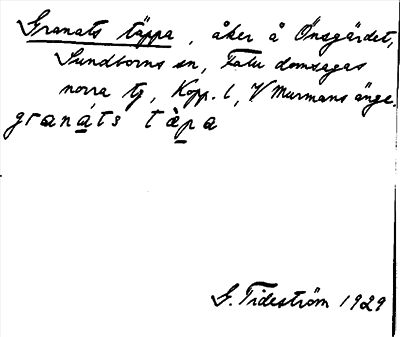 Granats täppa, åker å Önsgärdet,
Sundborns sn, Falu domsagas
norra tg, Kopp. l, V Murmans änge.
granáts tàpa
G. Tideström 1929